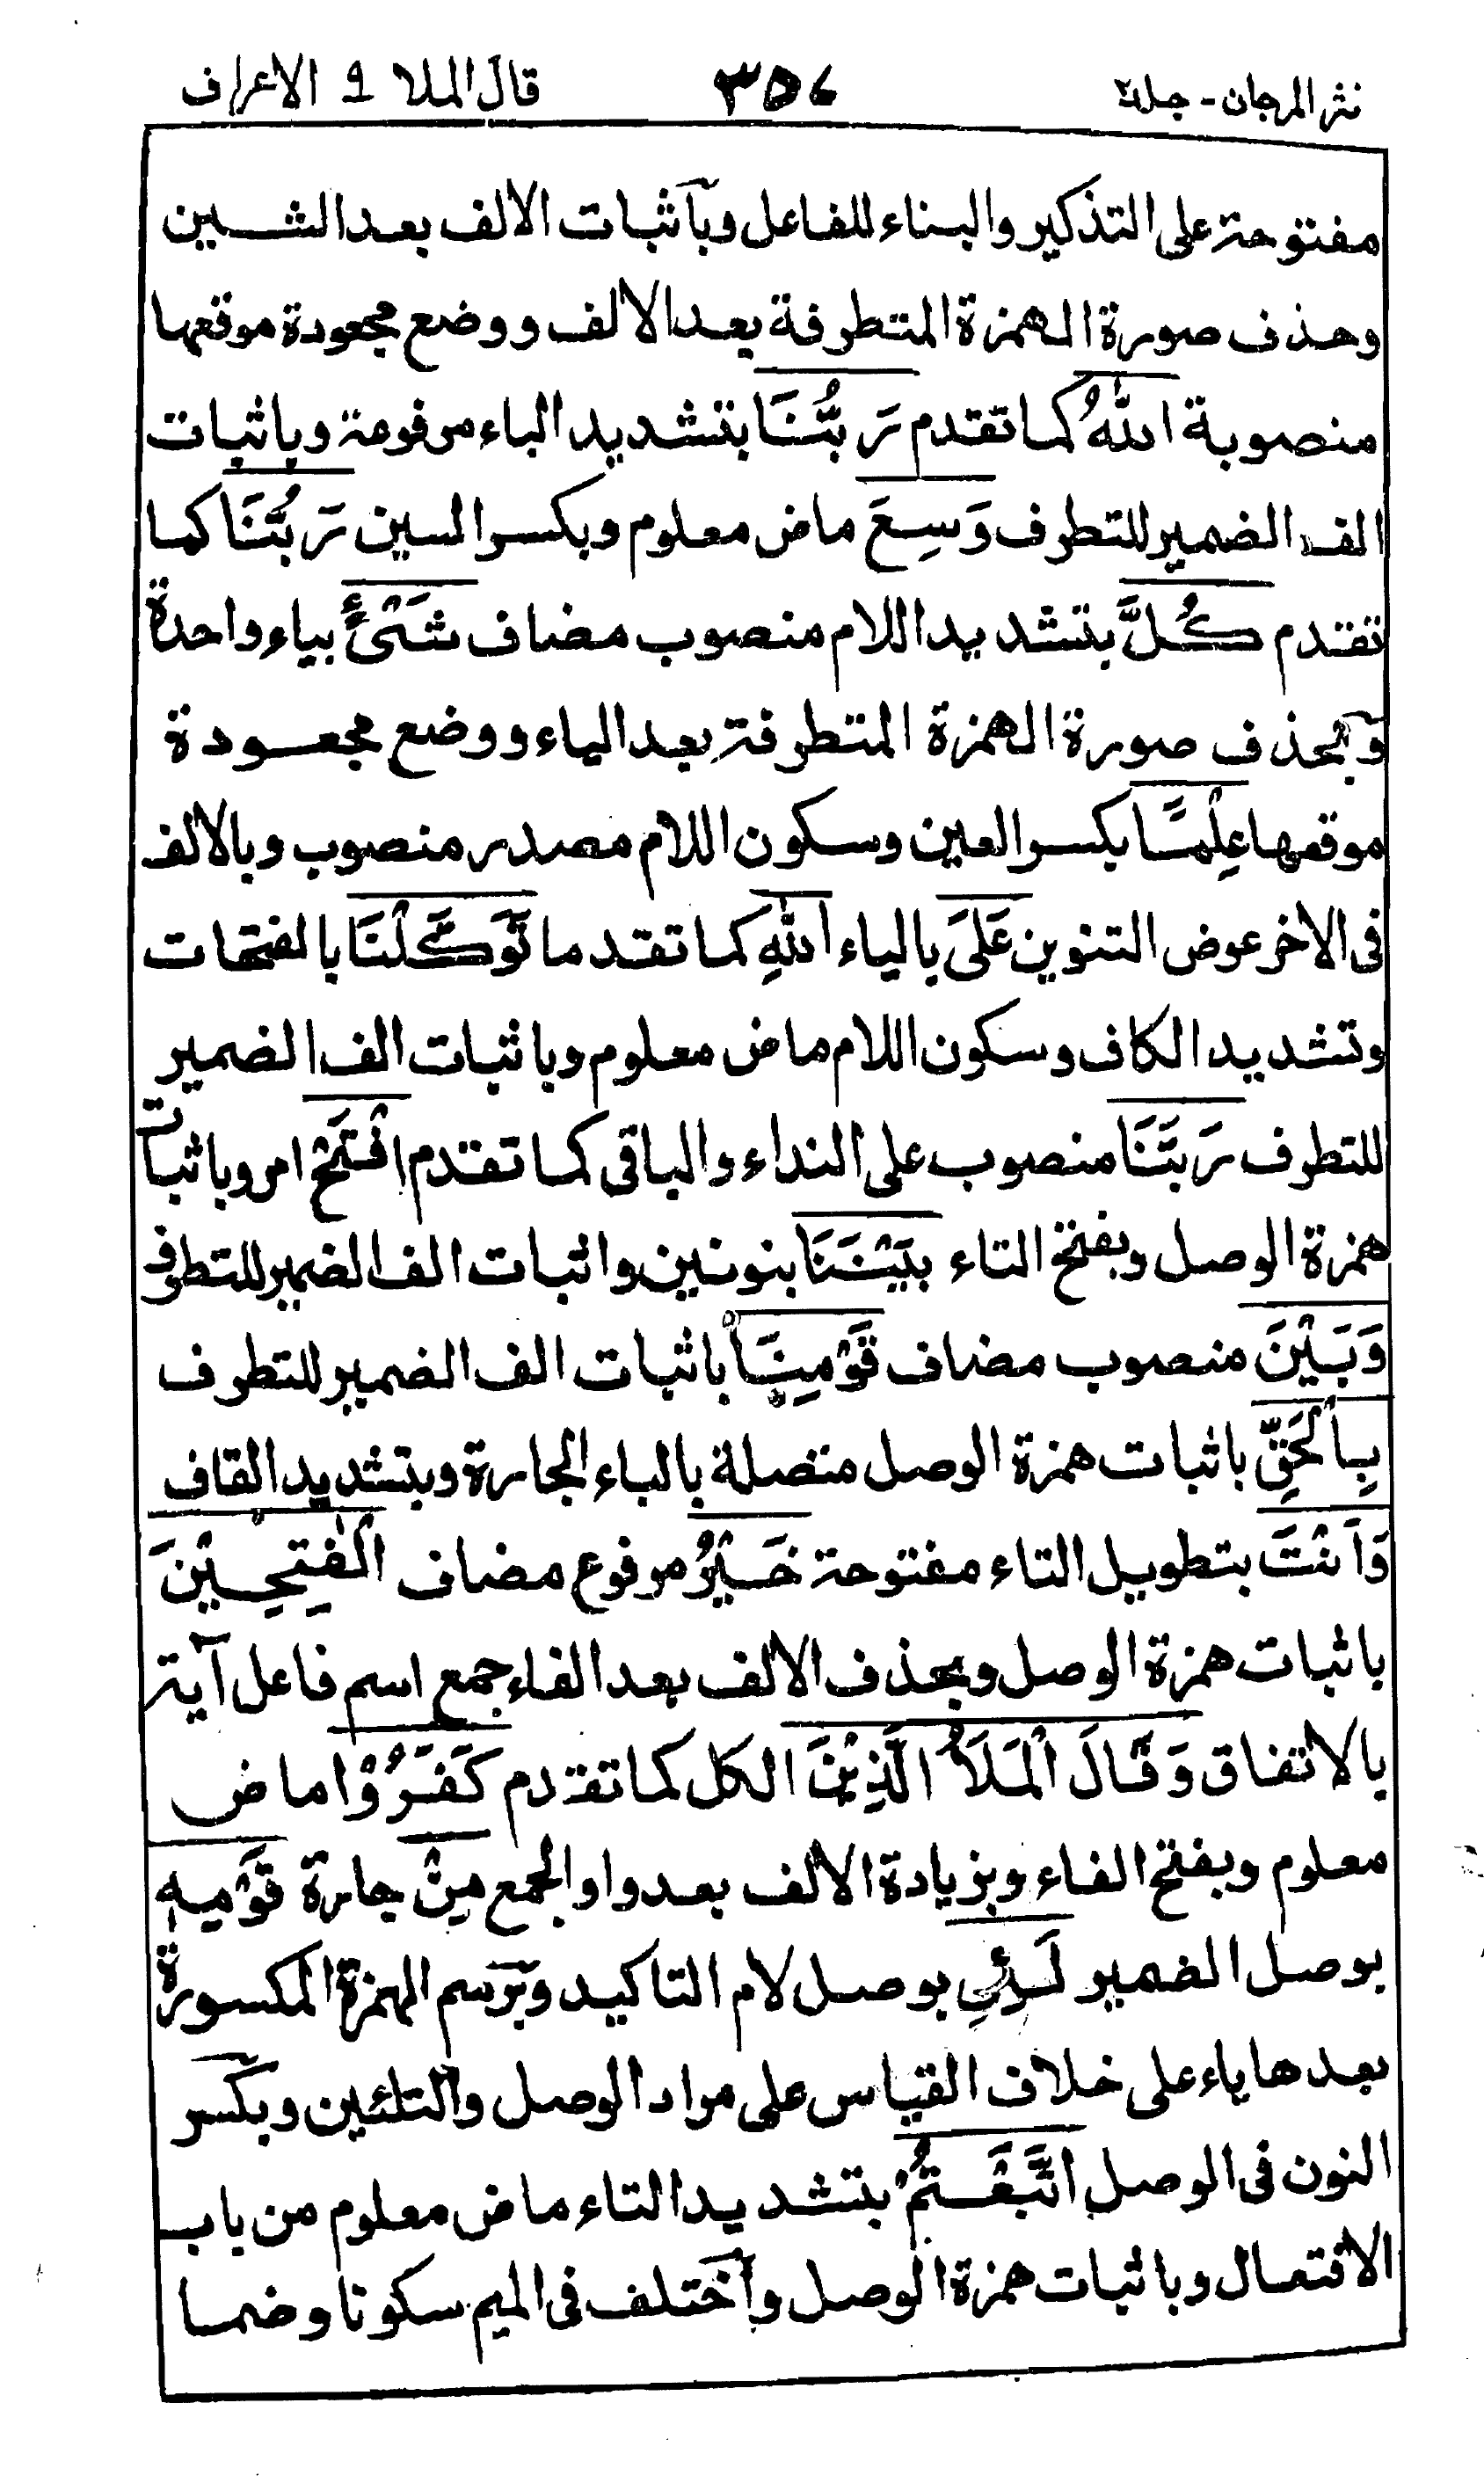 نثر المرجان - جلد٢ ٣٥٧ قال الملا ٩ الاعراف
مفتوحة على التذكير والبناء للفاعل وباثبات الالف بعد الشين
وحذف صورة الهمزة المتطرفة بعد الالف ووضع مجعودة موقعها
منصوبة اللّٰهُ كما تقدم رَبُّنَا بتشديد الباء مرفوعة وباثبات
الف الضمير للتطرف وَسِعَ ماض معلوم وبكسر السين رَبُّنَا كما
تقدم كُلَّ بتشديد اللام منصوب مضاف شَیْءٍ بياء واحدة
وبحذف صورة الهمزة المتطرفة بعد الياء ووضع مجعودة
موقعها عِلْمًا بكسر العين وسكون اللام مصدر منصوب وبالالف
فى الاخر عوض التنوين عَلَى بالياء اللّٰهِ كما تقدما تَوَكَّلْنَا بالفتحات
وتشديد الكاف وسكون اللام ماض معلوم وباثبات الف الضمير
للتطرف رَبَّنَا منصوب على النداء والباقى كما تقدم افْتَحْ امر وباثبات
همزة الوصل وبفتح التاء بَيْنَنَا بنونين واثبات الف الضمير للتطرف
وَبَيْنَ منصوب مضاف قَوْمِنَا باثبات الف الضمير للتطرف
بِالْحَقِّ باثبات همزة الوصل متصلة بالباء الجارة وبتشديد القاف
وَاَنْتَ بتطويل التاء مفتوحة خَيْرُ مرفوع مضاف الْفٰتِحِيْنَ
باثبات همزة الوصل وبحذف الالف بعد الفاء جمع اسم فاعل آية
بالاتفاق وَقَالَ الْمَلَاُ الَّذِيْنَ الكل كما تقدم كَفَرُوْا ماض
معلوم وبفتح الفاء وبزيادة الالف بعد واو الجمع مِنْ جارة قَوْمِهٖ
بوصل الضمير لَئِنِ بوصل لام التاكيد وبرسم الهمزة المكسورة
بعدها ياء على خلاف القياس على مراد الوصل والتلئين وبكسر
النون فى الوصل اتَّبَعْتُمْ بتشديد التاء ماض معلوم من باب
الافتعال وباثبات همزة الوصل واختلف فى الميم سكونا وضما